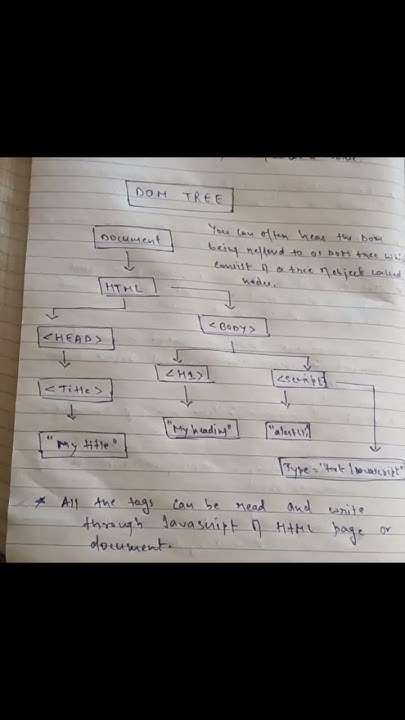 DOM TREE
You can often hear the DOM
being refferd to as DOM tree whi
consist of a tree of object called
nodes.
Document
HTML
<HEAD>
<BODY>
<Title>
<H1>
<script>
"My title"
"My heading"
"alert();
Type = "text/javascript"
* All the tags can be read and write
through Javascript of HTML page or
document.